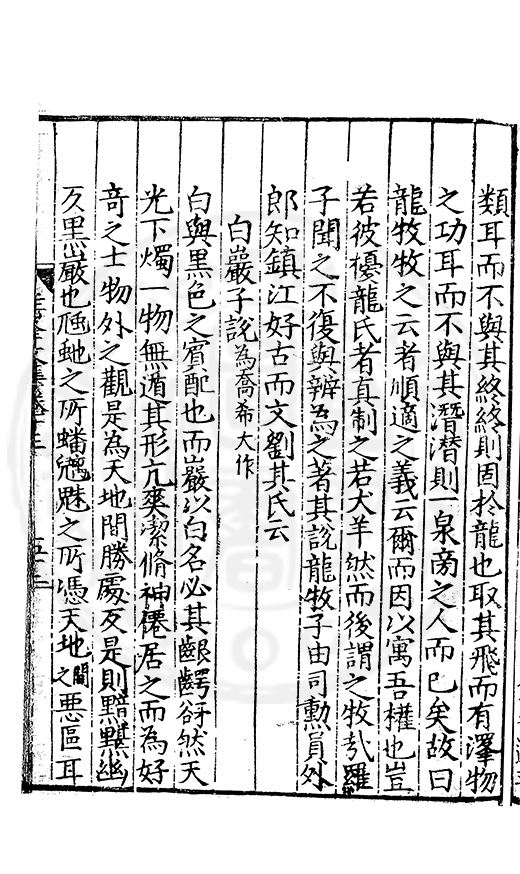 類耳而不與其終終則固於龍也取其飛而有澤物
之功耳而不與其潛潛則一泉商之人而已矣故曰
龍牧牧之云者順適之義云爾而因以寓吾權也豈
若彼擾龍氏者真制之若犬羊然而後謂之牧㢤羅
子聞之不復與辨為之著其說龍牧子由司勲員外
郎知鎮江好古而文劉其氏云
白巖子說為喬希大作
白與黒色之賓配也而巖以白名必其齦齶谺然天
光下燭一物無遁其形亢爽潔脩神僊居之而為好
竒之士物外之觀是為天地間勝處反是則黯黮幽
仄黒巖也虺虵之所蟠魑魅之所憑天地之間惡區耳